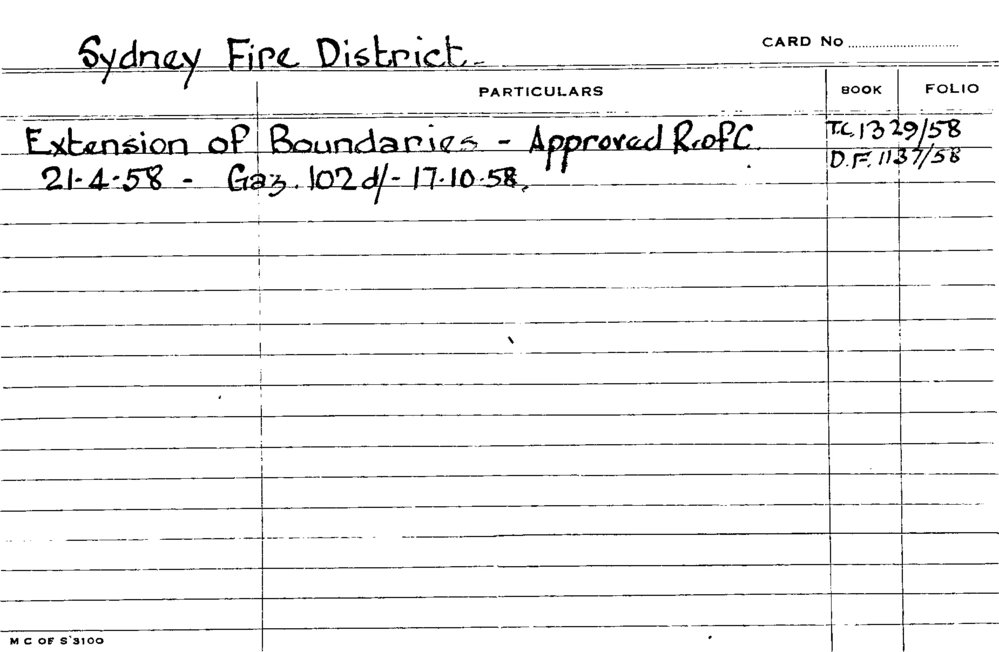 Sydney Fire District
CARD No
PARTICULARS BOOK FOLIO
Extension of Boundaries - Approved R.ofC. T.C.1329/58
21-4-58 - Gaz.102 d/- 17.10.58. D.F.1137/58
M C OF S 3100